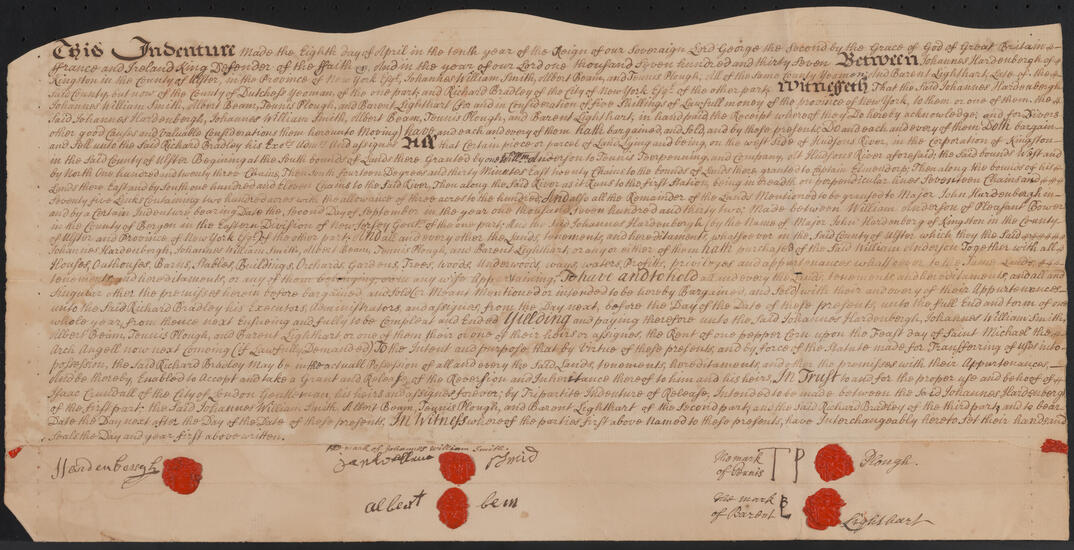 This Indenture Made the Eighth day of April in the tenth year of the Reign of our Sovereign Lord George the Second by the Grace of God of Great Britain
ffrance and Ireland King Defender of the ffaith &c. And in the year of our Lord one thousand Seven hundred and thirty Seven Between Johannes Hardenbergh of
Kingston in the County of Ulster, in the Province of New York Esqr, Johannes William Smith, Albert Beam, and Teunis Plough, All of the same County Yeomen, And Barent Lighthart, Late of the
Said County, but now of the County of Dutchess Yeoman of the one part, and Richard Bradley of the City of New York Esqr. of the other part. Witnesseth That the said Johannes Hardenbergh
Johannes William Smith, Albert Beam, Teunis Plough, and Barent Lighthart (for and in Consideration of five Shillings of Lawfull money of the province of New York, to them or one of them, the
Said Johannes Hardenbergh, Johannes William Smith, Albert Beam, Teunis Plough, and Barent Lighthart, in hand paid, the Receipt whereof they Do hereby acknowledge, and for Divers
other good Causes and Valuable Considerations them hereunto Moving) have and each and every of them hath bargained and Sold, and by these presents Do and each and every of them Doth bargain
and Sell unto the Said Richard Bradley his Exors Admrs and assignes All that Certain piece or parcel of Land Lying and being, on the west Side of Hudsons River, in the Corporation of Kingston
in the Said County of Ulster Begining at the South bounds of Lands there Granted by one William Anderson to Teunis Teerpenning, and Company, at Hudsons River aforesaid; the Said bounds West and
by North One hundred and twenty three Chains, Then South fourteen Degrees and thirty Minutes East twenty Chains to the bounds of Lands there granted to Captain Elmendorp; Then along the Bounds of his
Lands there East and by South one hundred and Eleven Chains to the Said River, Then along the Said River as it Runs to the first Station, being in breadth on perpendicular lines Seventeen Chains and
Seventy five Links Containing two hundred acres with the allowance of three acres to the hundred: And also all the Remainder of the Lands Mentioned to be granted to Major John Hardenbergh in
and by a Certain Indenture bearing Date the Second Day of September in the year one thousand Seven hundred and thirty two; Made between William Anderson of Pleasant Power
in the County of Bergen in the Eastern Division of New Jersey Gent. of the one part; And the Said Johannes Hardenbergh, by the Name of Major John Hardenberg of Kingston in the County
of Ulster and Province of New York Esqr. of the other part. And all and every other the Lands, tenements, and hereditaments whatsoever in the Said County of Ulster which they the Said
Johannes Hardenbergh, Johannes William Smith, Albert Beam, Teunis Plough, and Barent Lighthart, or any or either of them hath purchased of the Said William Anderson Together with all
Houses, Outhouses, Barns, Stables, Buildings, Orchards, Gardens, Trees, woods, Underwoods, ways, waters, Profits, priviledges and appurtenances whatsoever to the Same Lands
tenements, and hereditaments, or any of them belonging, or in any wise Appertaining; To have and to hold all and every the Lands, tenements and hereditaments, and all and
Singular other the premisses herein before bargained and Sold (or Ment Mentioned or intended to be hereby Bargained, and Sold with their and every of their Appurtenances
unto the Said Richard Bradley his Executors, Administrators, and assignes, from the Day next, before the Day of the Date of these presents, unto the full End and term of one
whole year, from thence next Ensuing and fully to be Compleat and Ended Yielding and paying therefore unto the Said Johannes Hardenbergh, Johannes William Smith,
Albert Beam, Teunis Plough, and Barent Lighthart or one of them their or one of their Heirs or assignes, the Rent of one pepper Corn upon the Feast day of Saint Michael the
Arch Angell now next Coming (if Lawfully Demanded) To the Intent and purpose that by Virtue of these presents, and by force of the Statute made for Transferring of Uses into
possession, the Said Richard Bradley May be in the actuall Possession of all and every the Said Lands, tenements, hereditaments, and other the premisses with their Appurtenances,
And be thereby Enabled to Accept and take a Grant and Release of the Reversion and Inheritance thereof to him and his heirs, In Trust to and for the proper use and behoof of
Isaac Crundall of the City of London Gentleman, his heirs and assignes forever; by Tripartite Indenture of Release, Intended to be made between the Said Johannes Hardenbergh
of the first part; the Said Johannes William Smith, Albert Beam, Teunis Plough, and Barent Lighthart of the Second part; and the Said Richard Bradley of the third part; and to bear
Date the Day next after the Day of the Date of these presents, In Witness whereof the parties first above Named to these presents, have Interchangeably hereto Set their hands and
Seals the Day and year first above written.
the mark of Johannes William Smith
JHardenbergh
Smid
The mark of Teunis TP Plough.
albert bem
The mark of Barent Lighthart